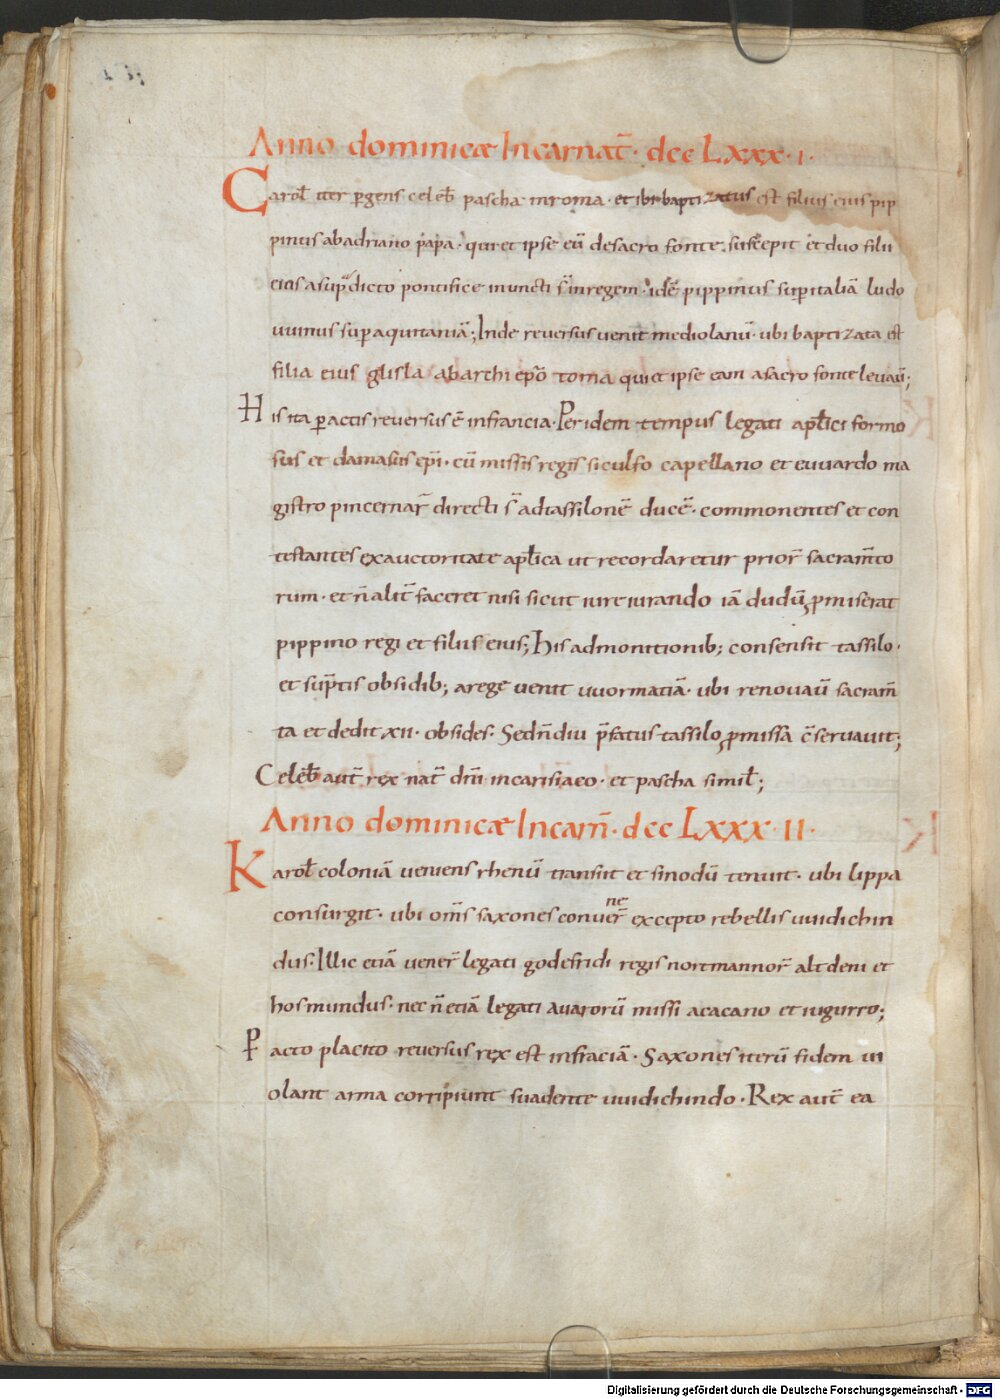 Anno dominicæ Incarnat̄. dcc Lxxx. I.
Carol̄ iter ꝑgens celeb̄ pascha inroma. et ibi baptizatus est filius eius pip
pinus abadriano papa. qui et ipse eū desacro fonte suscepit et duo filii
eius asupᵃdicto pontifice inuncti s̄ inregem. idē pippinus suꝑ italiā ludo
uuinus suꝑ aquitaniā; Inde reuersus uenit mediolanū. ubi baptizata est
filia eius gisla abarchiep̄o toma qui et ipse eam asacro fonte leuaū;
His ita ꝑactis reuersus ē infrancia. Per idem tempus legati apl̄ici formo
sus et damasus ep̄i. cū missis regis riculfo capellano et euuardo ma
gistro pincernar̄ directi s̄ adtassilonē ducē. commonentes et con
testantes exauctoritate apl̄ica ut recordaretur prior̄ sacram̄to
rum. et n̄ alit̄ faceret nisi sicut iureiurando iā dudū ꝓmiserat
pippino regi et filiis eius; His admonitionib; consensit tassilo.
et sūptis obsidib; arege uenit uuormatiā. ubi renouaū sacram̄
ta et dedit xii. obsides. Sed n̄ diu p̄fatus tassilo ꝓmissa c̄seruauit;
Celeb̄ aut̄ rex nat̄ dn̄i incarisiaco. et pascha simil̄;
Anno dominicæ Incarn̄. dcc Lxxx. II.
Karol̄ coloniā ueniens rhenū transiit et sinodū tenuit. ubi lippa
consurgit. ubi om̄s saxones conuener̄ excepto rebellis uuidichin
dus. Illic etiā uener̄ legati godefridi regis nortmannor̄ altdeni et
hosmundus. nec n̄ etiā legati auarorū missi acacano et iugurro;
Pacto placito reuersus rex est infraciā. Saxones iterū fidem ui
olant arma corripiunt suadente uuidichindo. Rex aut̄ ea
Digitalisierung gefördert durch die Deutsche Forschungsgemeinschaft - DFG